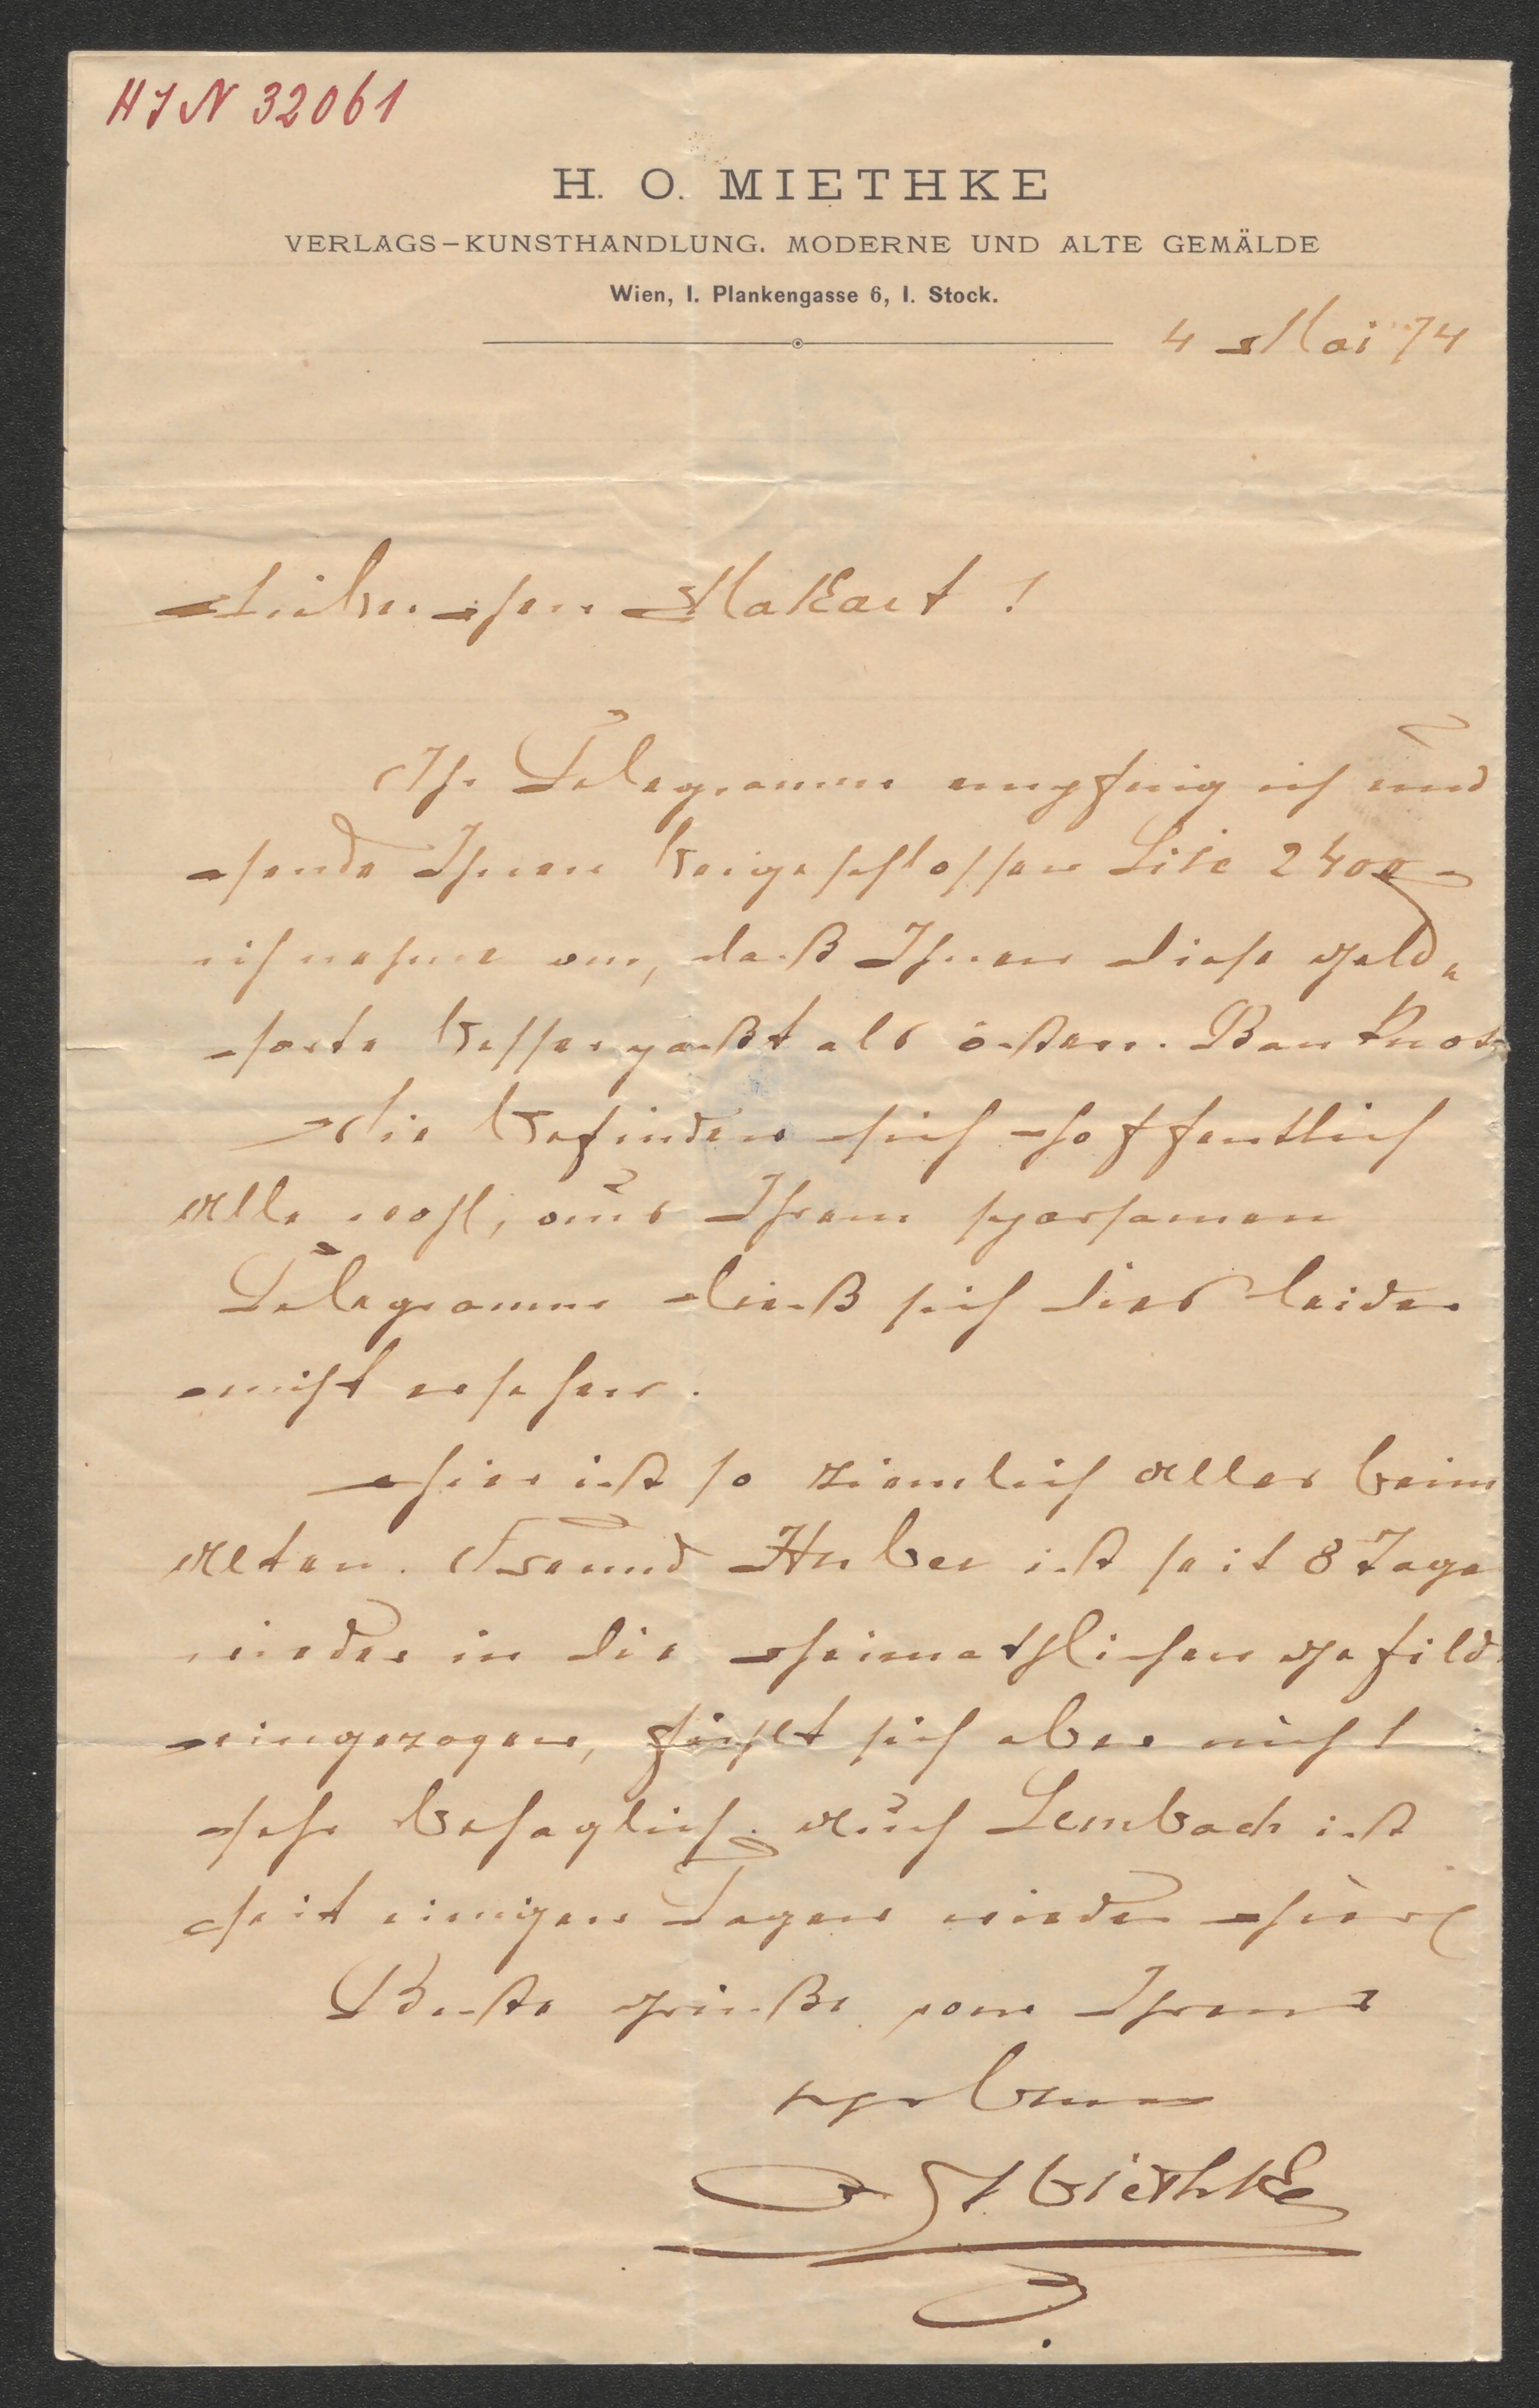 HIN 32061
H. O. MIETHKE
VERLAGS-KUNSTHANDLUNG. MODERNE UND ALTE GEMÄLDE
Wien, I. Plankengasse 6, I. Stock.
4 Mai 74
Lieber Herr Makart!
Ihr Telegramm empfing ich und
sende Ihnen beigeschlossen Lire 2400
ich nehme an, daß Ihnen diese Geld-
sorte besser paßt als österr. Banknot
Sie befinden sich hoffentlich
Alle wohl, aus Ihrem sparsamen
Telegramm ließ sich dies leider
nicht ersehen.
Hier ist so ziemlich Alles beim
Alten. Freund Huber ist seit 8 Tage
wieder in die heimathlichen Gefild
eingezogen, fühlt sich aber nicht
sehr behaglich. Auch Lenbach ist
seit einigen Tagen wieder hier
Beste Grüße von Ihrem
ergebenen
Miethke